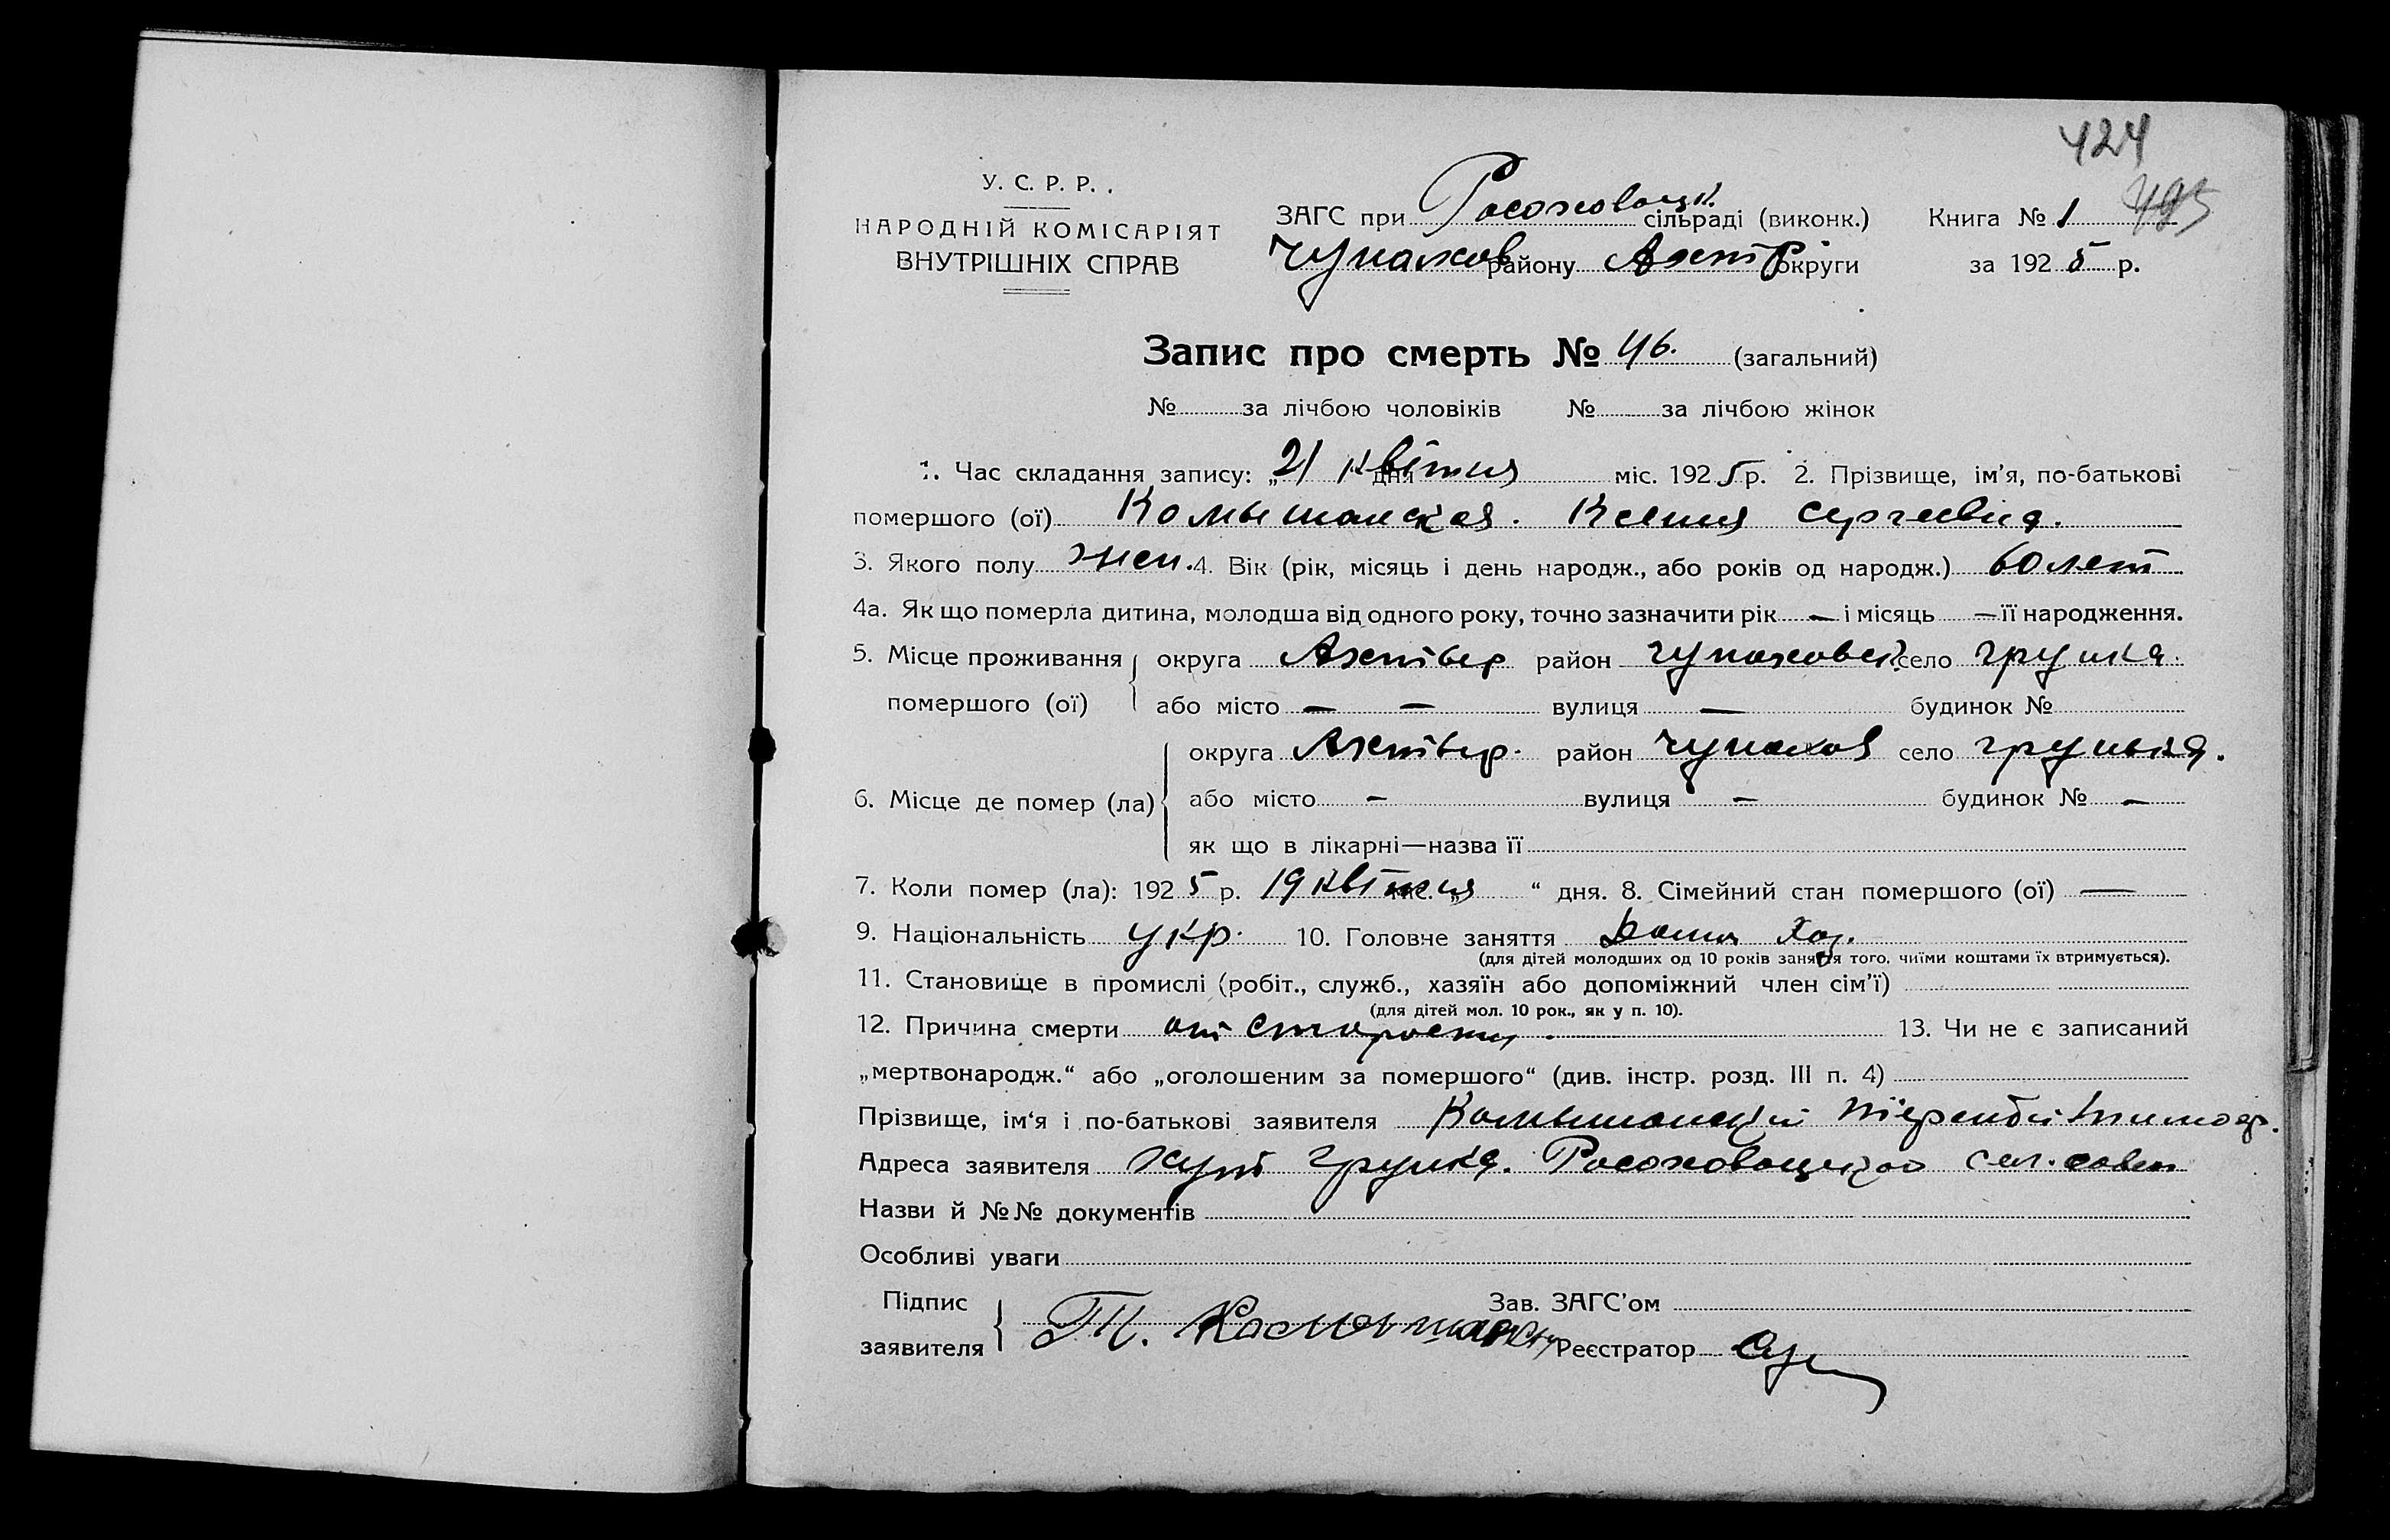 424
У. С. Р. Р.
НАРОДНІЙ КОМІСАРІЯТ
ВНУТРІШНІХ СПРАВ
ЗАГС при Росоховацк. сільраді (виконк.)
Чупахов району Ахт округи
Книга № 1 495
за 1925 р.
Запис про смерть № 46. (загальний)
№ за лічбою чоловіків № за лічбою жінок
1. Час складання запису: „21 дня квітня міс. 1925 р. 2. Прізвище, ім’я, по-батькові
помершого (ої) Комышанская. Ксения Сергеевна.
3. Якого полу жен. 4. Вік (рік, місяць і день народж., або років од народж.) 60 лет
4а. Як що померла дитина, молодша від одного року, точно зазначити рік — і місяць — її народження.
5. Місце проживання помершого (ої) округа Ахтыр район Чупаховск село Грунка.
або місто — — вулиця — будинок №
6. Місце де помер (ла) округа Ахтыр. район Чупахов село Грунька.
або місто — вулиця — будинок № —
як що в лікарні—назва її
7. Коли помер (ла): 1925 р. 19 квітня міс. „ “ дня. 8. Сімейний стан помершого (ої) —
9. Національність укр. 10. Головне заняття Домаш Хоз.
(для дітей молодших од 10 років заняття того, чиїми коштами їх втримується).
11. Становище в промислі (робіт., служб., хазяїн або допоміжний член сім’ї)
(для дітей мол. 10 рок., як у п. 10).
12. Причина смерти от старости. 13. Чи не є записаний
„мертвонародж.“ або „оголошеним за помершого“ (див. інстр. розд. III п. 4)
Прізвище, ім‘я і по-батькові заявителя Комышанский Терентий Тимоф.
Адреса заявителя хут Грунка. Росоховацкого сел. совет
Назви й №№ документів
Особливі уваги
Підпис заявителя Т. Комышанск
Зав. ЗАГС’ом
Реєстратор